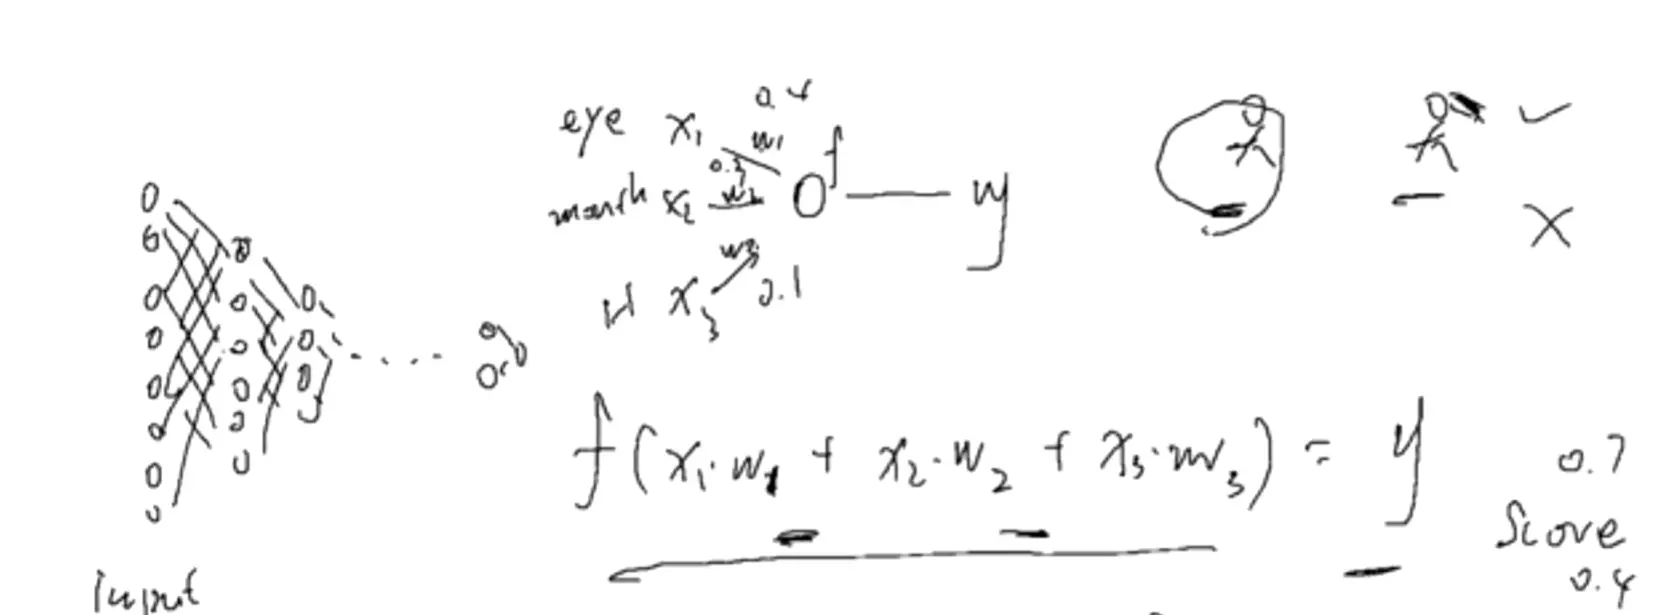 eye x₁ w₁ 0.4
mouth x₂ w₂ 0.3
x₃ w₃ 0.1
f
y
f(x₁·w₁ + x₂·w₂ + x₃·w₃) = y
0.7
Score
0.4
input